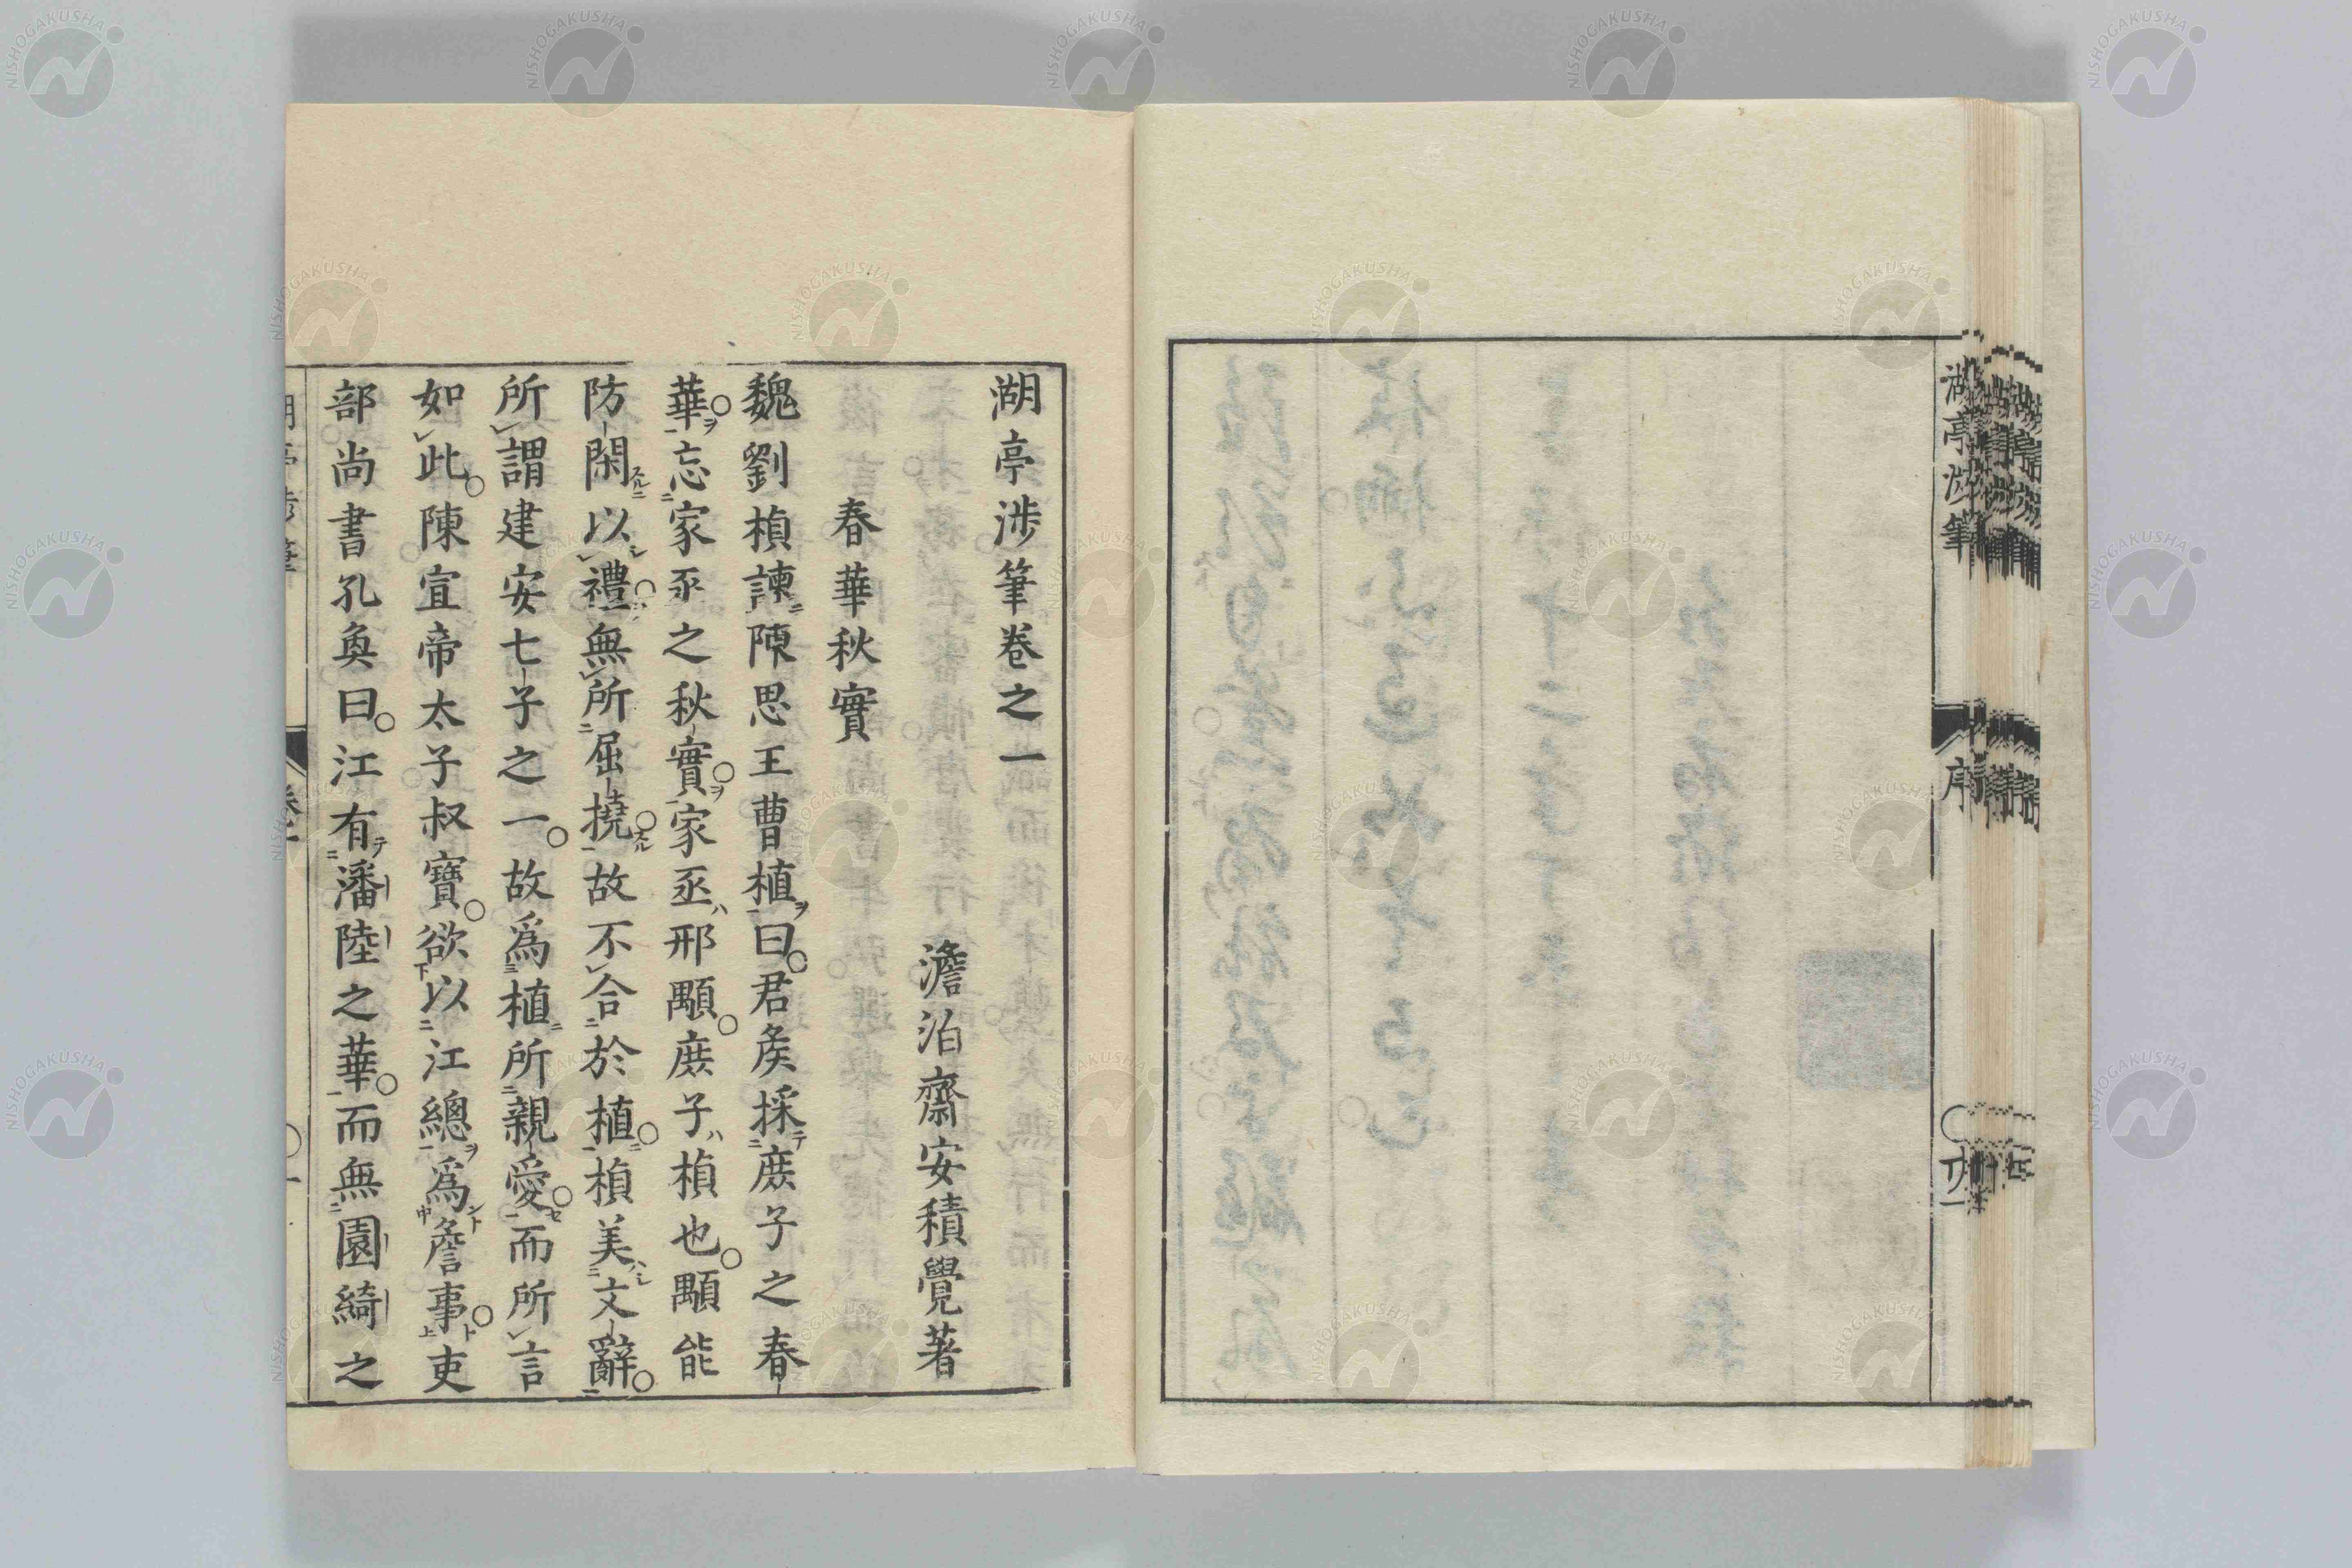 湖亭渉筆
序
湖亭渉筆卷之一
澹泊齋安積覺著
春華秋實
魏劉楨諫陳思王曹植曰君矦採庻子之春
華忘家丞之秋實家丞邢顒庻子楨也顒能
防閑以禮無所屈撓故不合於植楨美文辭
所謂建安七子之一故爲植所親愛而所言
如此陳宣帝太子叔寶欲以江總爲詹事吏
部尚書孔奐曰江有潘陸之華而無園綺之
NISHOGAKUSHA